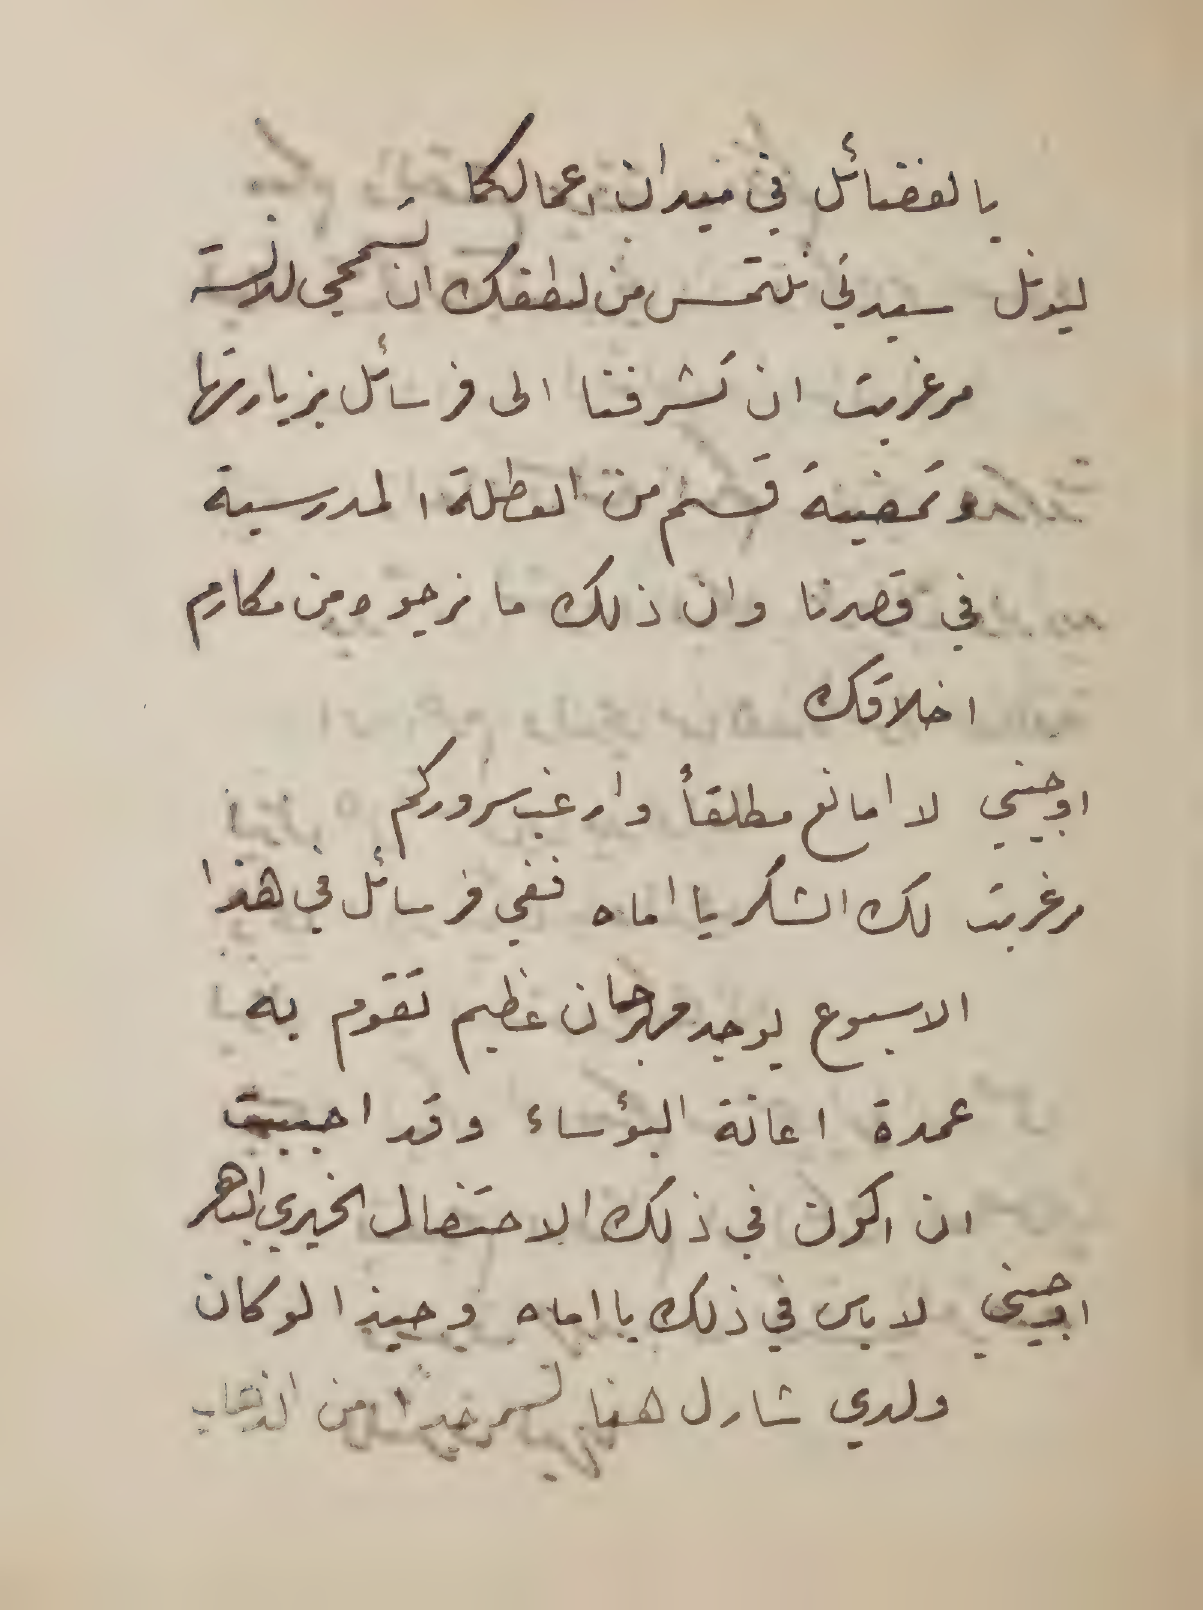 بالفضائل في ميدان اعمالكما
ليونل سيدتي نلتمس من لطفك ان تسمحي للانسة
مرغريت ان تشرفنا الى فرسائل بزيارتها
وتمضية قسم من العطلة المدرسية
في قصرنا وان ذلك ما نرجوه من مكارم
اخلاقك
اوجيني لا امانع مطلقاً وارغب سروركم
مرغريت لك الشكر يا اماه ففي فرسائل في هذا
الاسبوع يوجد مهرجان عظيم تقوم به
عمدة اعانة البؤساء وقد احببت
ان اكون في ذلك الاحتفال الخيري الباهر
اوجيني لا باس في ذلك يا اماه وحبذا لو كان
ولدي شارل هنا لسر جداً من الذهاب